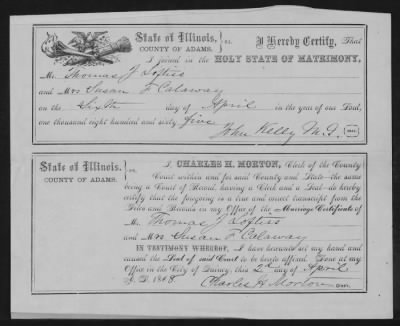 State of Illinois, } ss. I Hereby Certify, That
COUNTY OF ADAMS.
I joined in the HOLY STATE OF MATRIMONY,
Mr. Thomas J Loftiss
and Mrs Susan F Calaway
on the Sixth day of April in the year of our Lord,
one thousand eight hundred and sixty five
John Kelly M.G.
State of Illinois. } ss. I, CHARLES H. MORTON, Clerk of the County
COUNTY OF ADAMS. Court within and for said County and State—the same
being a Court of Record, having a Clerk and a Seal—do hereby
certify that the foregoing is a true and correct transcript from the
Files and Records in my Office of the Marriage Certificate of
Mr. Thomas J Loftiss
and Mrs Susan F Calaway
IN TESTIMONY WHEREOF, I have hereunto set my hand and
caused the Seal of said Court to be hereto affixed. Done at my
Office in the City of Quincy, this 2d day of April
A. D. 1868. Charles H Morton Clerk.